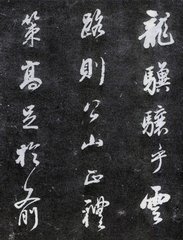 龍驥驤乎雲
路則公山正禮
策高足於俞